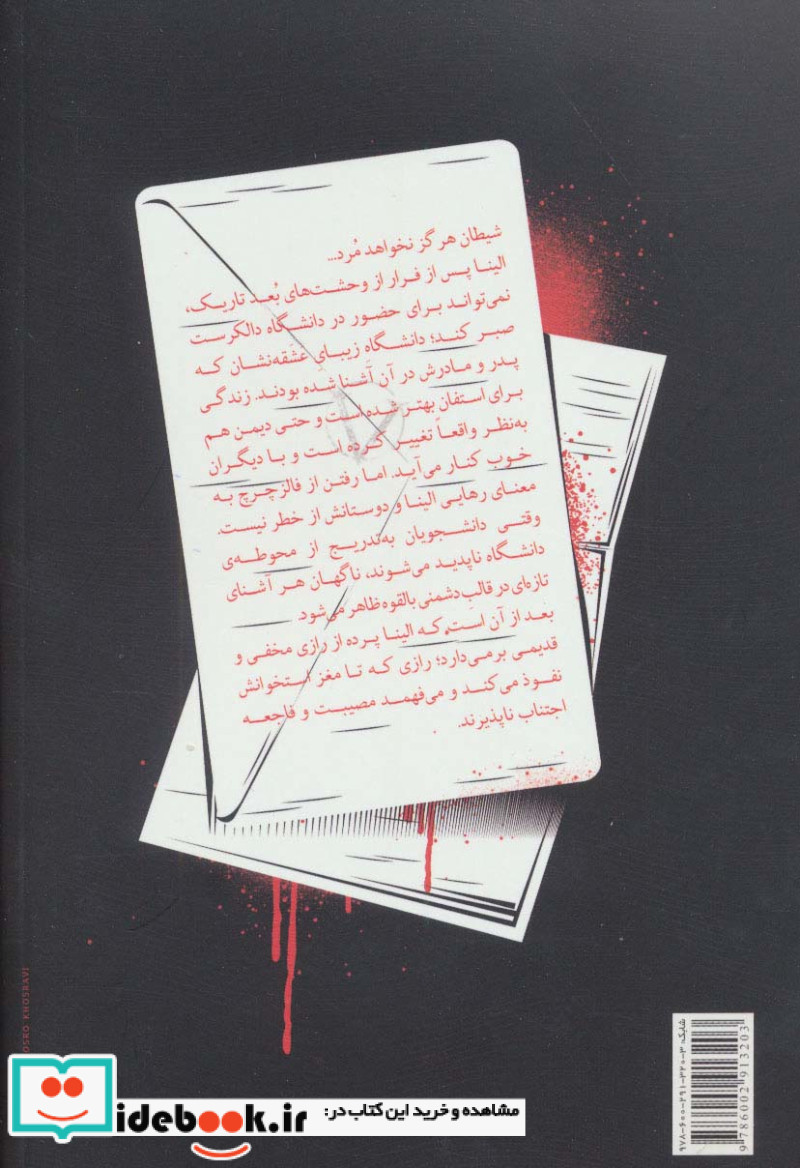 شیطان هرگز نخواهد مُرد...
الینا پس از فرار از وحشت‌های بُعد تاریک،
نمی‌تواند برای حضور در دانشگاه دالکرست
صبر کند؛ دانشگاه زیبای عشقه‌نشان که
پدر و مادرش در آن آشنا شده بودند. زندگی
برای استفان بهتر شده است و حتی دیمن هم
به‌نظر واقعاً تغییر کرده است و با دیگران
خوب کنار می‌آید. اما رفتن از فالزچرچ به
معنای رهایی الینا و دوستانش از خطر نیست.
وقتی دانشجویان به‌تدریج از محوطه‌ی
دانشگاه ناپدید می‌شوند، ناگهان هر آشنای
تازه‌ای در قالبِ دشمنی بالقوه ظاهر می‌شود.
بعد از آن است که الینا پرده از رازی مخفی و
قدیمی برمی‌دارد؛ رازی که تا مغز استخوانش
نفوذ می‌کند و می‌فهمد مصیبت و فاجعه
اجتناب ناپذیرند.
OSRO KHOSRAVI
شابک: ۹۷۸-۶۰۰-۲۹۱-۳۲۰-۳
9786002913203
idebook.ir
مشاهده و خرید این کتاب در: